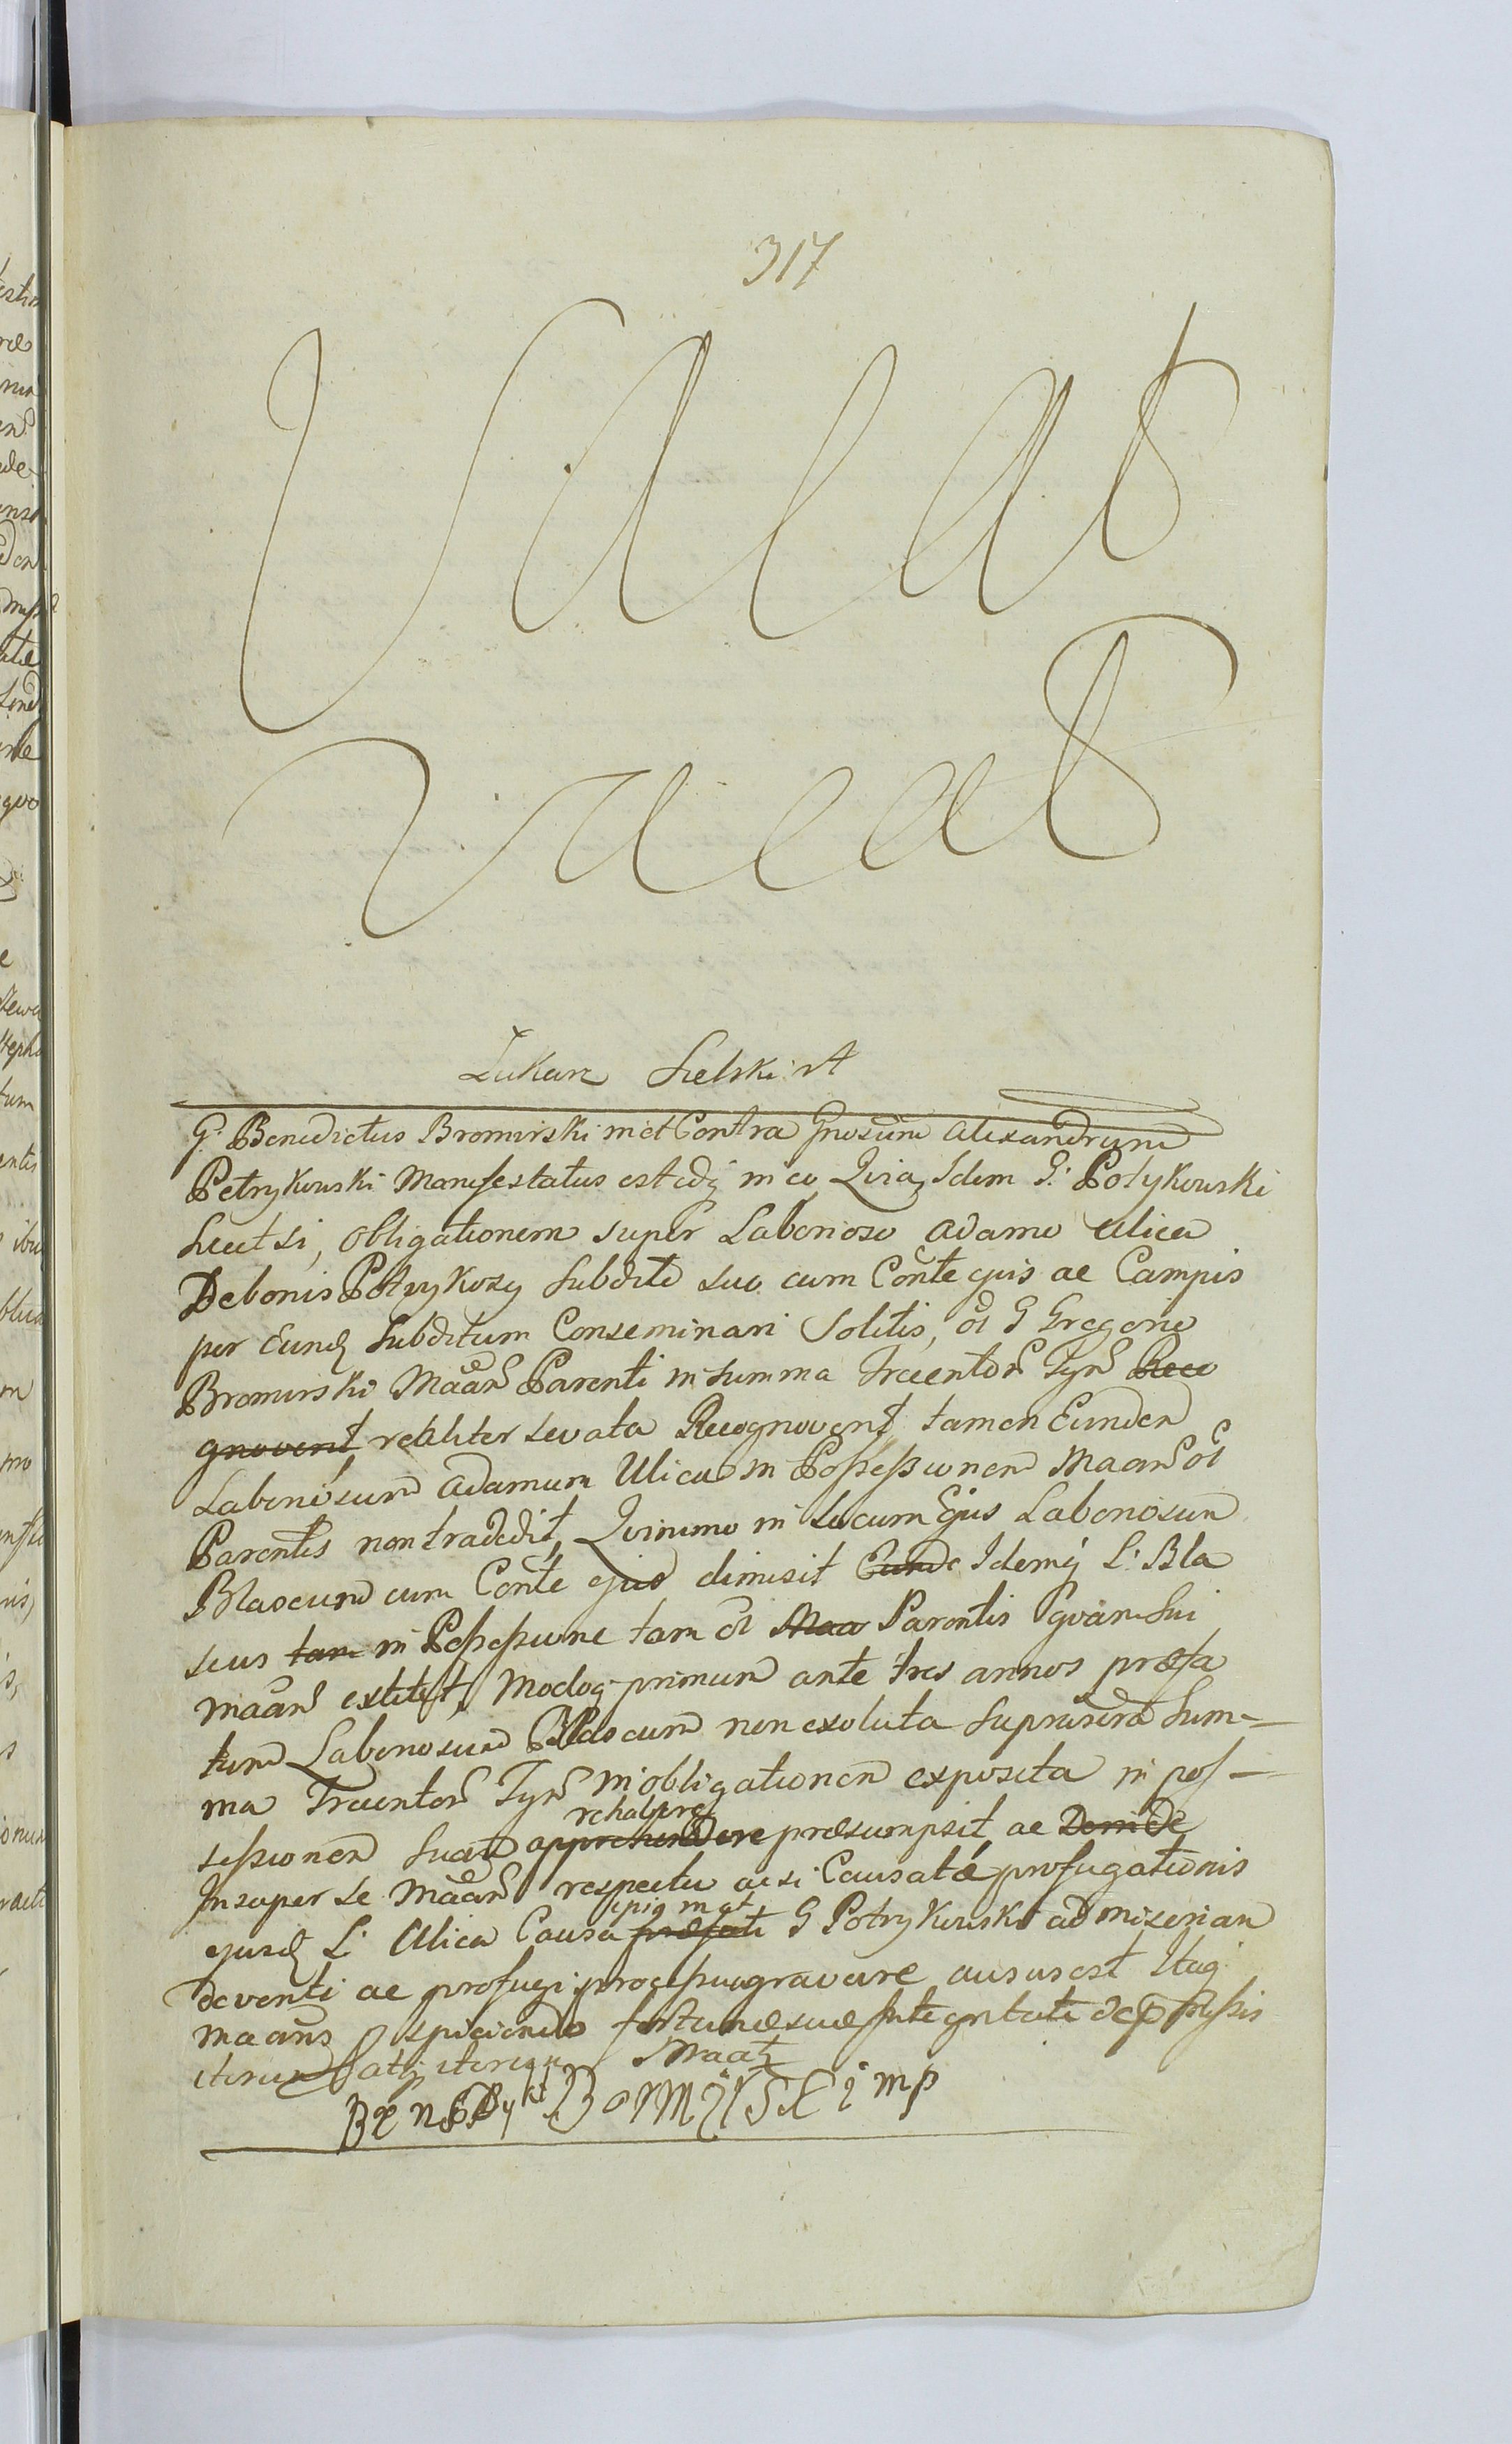 317
Vacat
Vacat
Łukasz Sielski
G: Benedictus Bromirski in et Contra Gnosum Alexandrum
Petrykowski Manifestatus est idq in eo Quia Idem G: Potrykowski
Licet si, obligationem super Laborioso Adamo Ulica
De bonis Potrykozy Subdito suo cum Conte ejus ac Campis
per Eund Subditum Conseminari Solitis, ol G Gregorio
Bromirski Maan Parenti in summa Trecentor Tyn Reco
gnoverit realiter levata Recognoverit tamen Eundem
Laboriosum Adamum Ulica in Possessionem Maan ol
Parentis non tradidit, Quinimo in Locum Ejus Laboriosum
Blascum cum Conte ejus dimisit Eunde Idemq L: Bla
scus tam in Possessione tam ol Maa Parentis quam Sui
Maan extitit, Modoq primum ante tres annos præfa
tum Laboriosum Blascum non exoluta Suprascra Sum-
ma Trecentor Tyn in obligationem exposita in pos-
sessionem Suam apprehendere præsumpsit ac Deinde
Insuper se Maan respectu acsi Causatæ profugationis
ejusd L: Ulica Causa præfati G Potrykowski ad miseriam
deventi ac profugi processu gravare ausus est Itaq
maans prospiciendo fortunæ suæ Integritati de præmissis
iterum atq iterum Maatz
Benedykt Bormirski mp